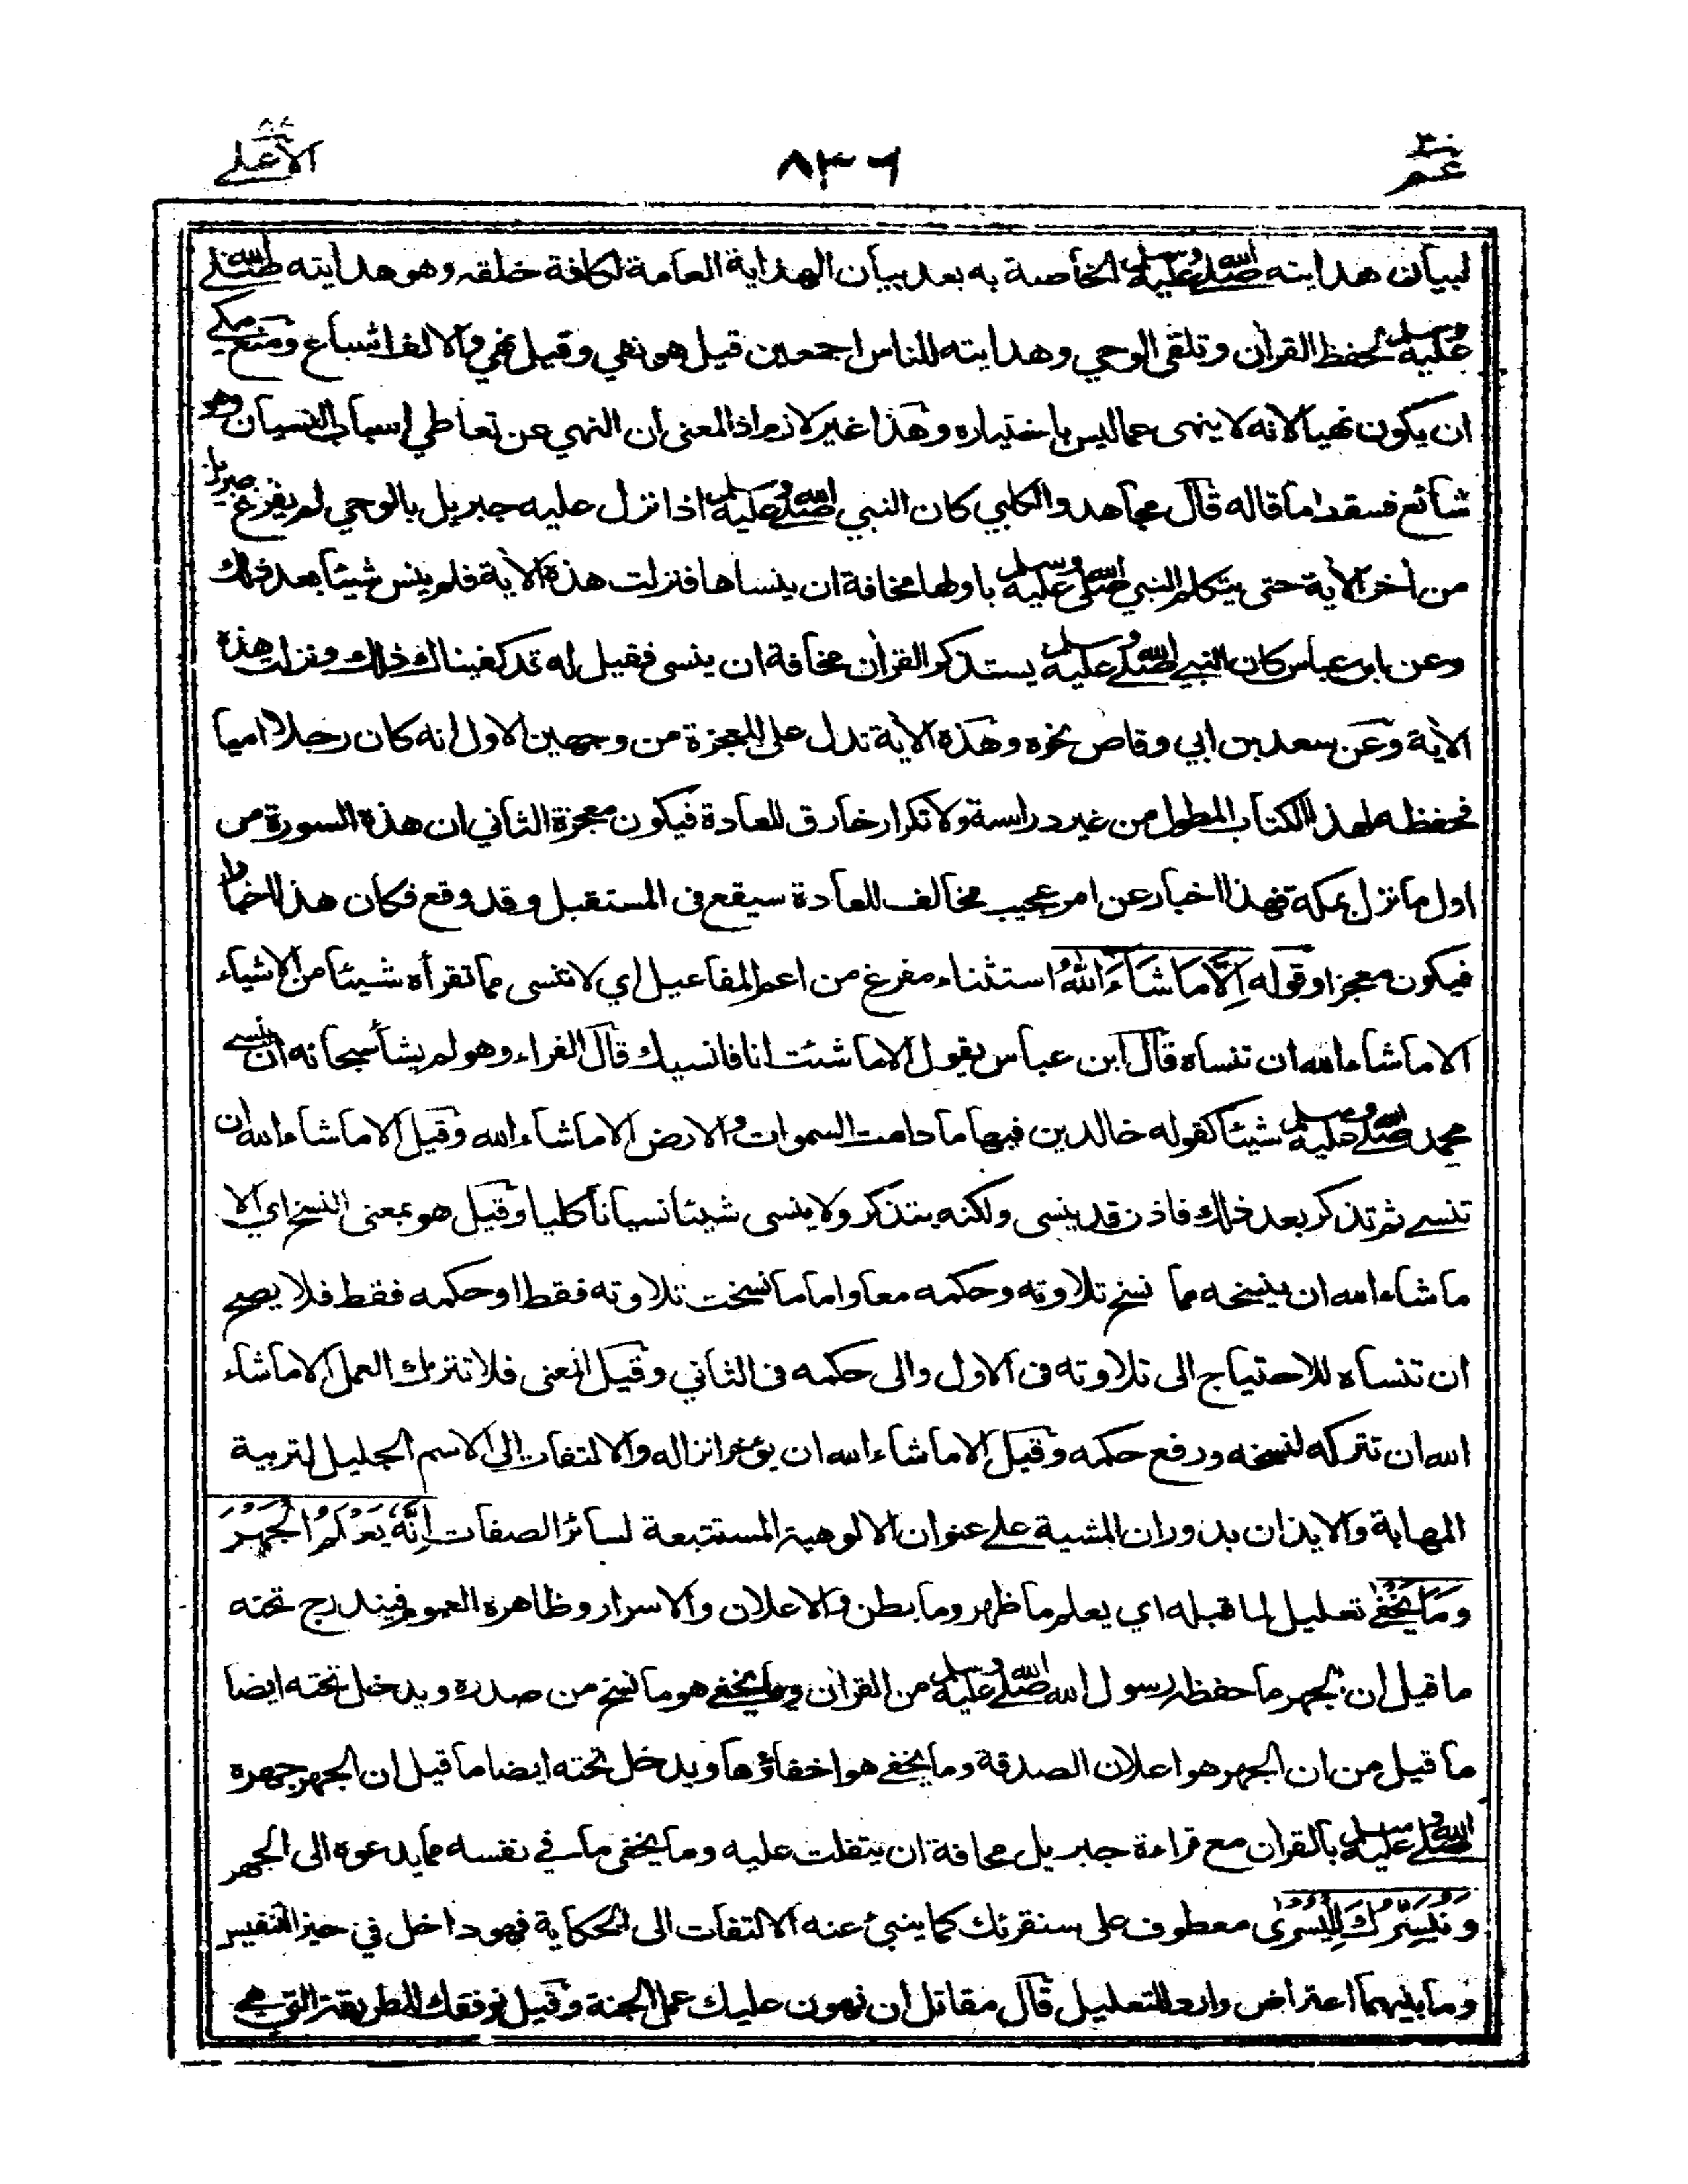 عم ٣٠
٨٣٦
الأعلى ٨٧
لبيان هدايته صلى الله عليه وسلم الخاصة به بعد بيان الهداية العامة لكافة خلقه وهو هدايته صلى الله
عليه وسلم لحفظ القرآن وتلقي الوحي وهدايته للناس اجمعين قيل هو نفي وقيل نهي والالف اشباع ومنع مكي
ان يكون نهيا لانه لا ينهى عما ليس باختياره وهذا غير لازم اذ المعنى ان النهي عن تعاطي اسباب النسيان وهو
شائع فسقط ما قاله قال مجاهد والكلبي كان النبي صلى الله عليه وسلم اذا نزل عليه جبريل بالوحي لم يفرغ جبريل
من اٰخر الاٰية حتى يتكلم النبي صلى الله عليه وسلم باولها مخافة ان ينساها فنزلت هذه الاٰية فلم ينس شيئا بعد ذلك
وعن ابن عباس كان النبي صلى الله عليه وسلم يستذكر القرآن مخافة ان ينسى فقيل له قد كفيناك ذلك ونزلت هذه
الاٰية وعن سعد بن ابي وقاص نحوه وهذه الاٰية تدل على المعجزة من وجهين الاول انه كان رجلا اميا
فحفظه لهذا الكتاب المطول من غير دراسة ولا تكرار خارق للعادة فيكون معجزة الثاني ان هذه السورة من
اول ما نزل بمكة فهذا اخبار عن امر عجيب مخالف للعادة سيقع في المستقبل وقد وقع فكان هذا اخبارا
فيكون معجزا وقوله اِلَّا مَا شَاءَ اللهُ استثناء مفرغ من اعم المفاعيل اي لا تنسى مما تقرأه شيئا من الاشياء
الا ما شاء الله ان تنساه قال ابن عباس يقول الا ما شئت انا فانسيك قال الفراء وهو لم يشأ سبحانه ان ينسى
محمد صلى الله عليه وسلم شيئا كقوله خالدين فيها ما دامت السموات والارض الا ما شاء الله وقيل الا ما شاء الله ان
تنسى ثم تذكر بعد ذلك فاذن قد ينسى ولكنه يتذكر ولا ينسى شيئا نسيانا كليا وقيل هو بمعنى النسخ اي الا
ما شاء الله ان ينسخه مما نسخ تلاوته وحكمه معا واما ما نسخت تلاوته فقط او حكمه فقط فلا يصح
ان تنساه للاحتياج الى تلاوته في الاول والى حكمه في الثاني وقيل المعنى فلا تترك العمل الا ما شاء
الله ان تتركه لنسخه ورفع حكمه وقيل الا ما شاء الله ان يؤخر انزاله والالتفات الى الاسم الجليل لتربية
المهابة والايذان بدوران المشية على عنوان الالوهية المستتبعة لسائر الصفات اِنَّهٗ يَعْلَمُ الْجَهْرَ
وَمَا يَخْفٰى تعليل لما قبله اي يعلم ما ظهر وما بطن والاعلان والاسرار وظاهره العموم فيندرج تحته
ما قيل ان الجهر ما حفظه رسول الله صلى الله عليه وسلم من القرآن وما يخفى هو ما نسخ من صدره ويدخل تحته ايضا
ما قيل من ان الجهر هو اعلان الصدقة وما يخفى هو اخفاؤها ويدخل تحته ايضا ما قيل ان الجهر جهره
صلى الله عليه وسلم بالقرآن مع قراءة جبريل مخافة ان يتفلت عليه وما يخفى ما في نفسه مما يدعوه الى الجهر
وَنُيَسِّرُكَ لِلْيُسْرٰى معطوف على سنقرئك كما ينبئ عنه الالتفات الى الحكاية فهو داخل في حيز التنفيس
وما بينهما اعتراض وارد للتعليل قال مقاتل ان نهون عليك عمل الجنة وقيل نوفقك للطريقة التي هي